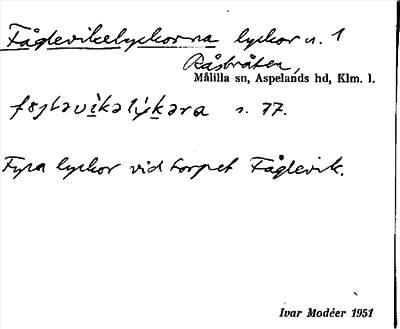 Fåglevikelyckorna lyckor n. 1
Råsbråten,
Målilla sn, Aspelands hd, Klm. l.
s. 77.
Fyra lyckor vid torpet Fåglevik.
Ivar Modéer 1951